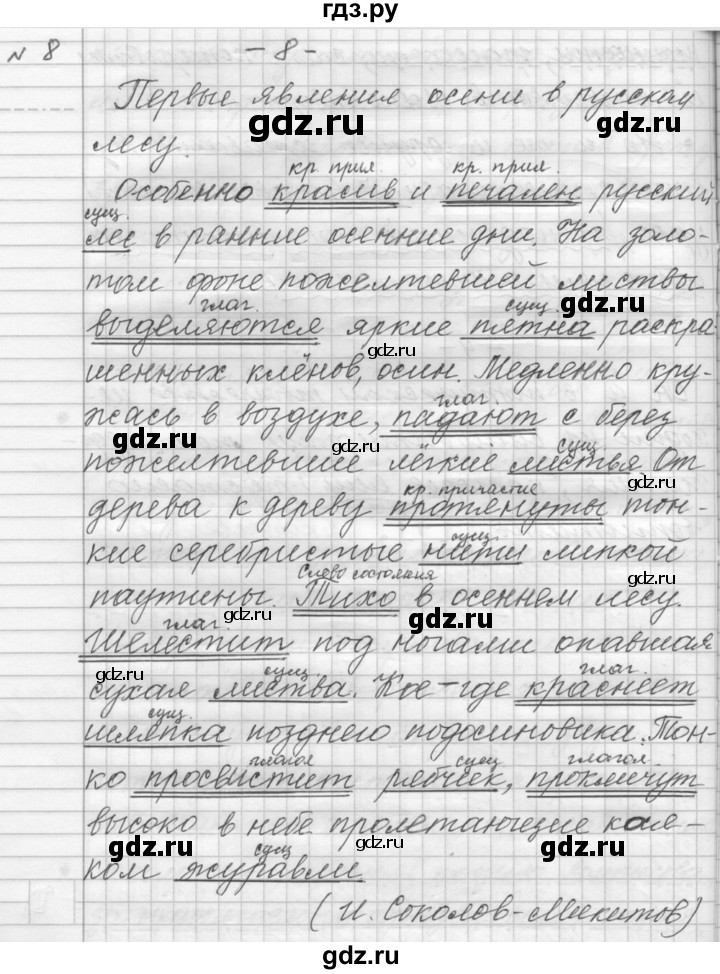 гдз.ру
№ 8
- 8 -
Первые явления осени в русском
gdz.ru gdz.ru
лесу.
кр. прил. кр. прил.
Особенно красив и печален русский
сущ.
лес в ранние осенние дни. На золо-
том фоне пожелтевшей листвы
глаг. сущ. gdz.ru
выделяются яркие пятна раскра
gdz.ru
шенных клёнов, осин. Медленно кру-
глаг.
жась в воздухе, падают с берез
gdz.ru gdz.ru сущ
пожелтевшие лёгкие листья. От
gdz.ru
кр. причастие
дерева к дереву протянуты тон-
сущ.
кие серебристые нити липкой
Слово состояния
паутины. Тихо в осеннем лесу.
глаг. gdz.ru gdz.ru
Шелестит под ногами опавшая
gdz.ru сущ. глаг.
сухая листва. Кое-где краснеет
сущ.
шляпка позднего подосиновика. Тон-
gdz.ru
глагол сущ глагол.
ко просвистит рябчик, прокличут
высоко в небе пролетающие кося-
gdz.ru сущ gdz.ru
ком журавли
(И. Соколов-Микитов)
gdz.ru